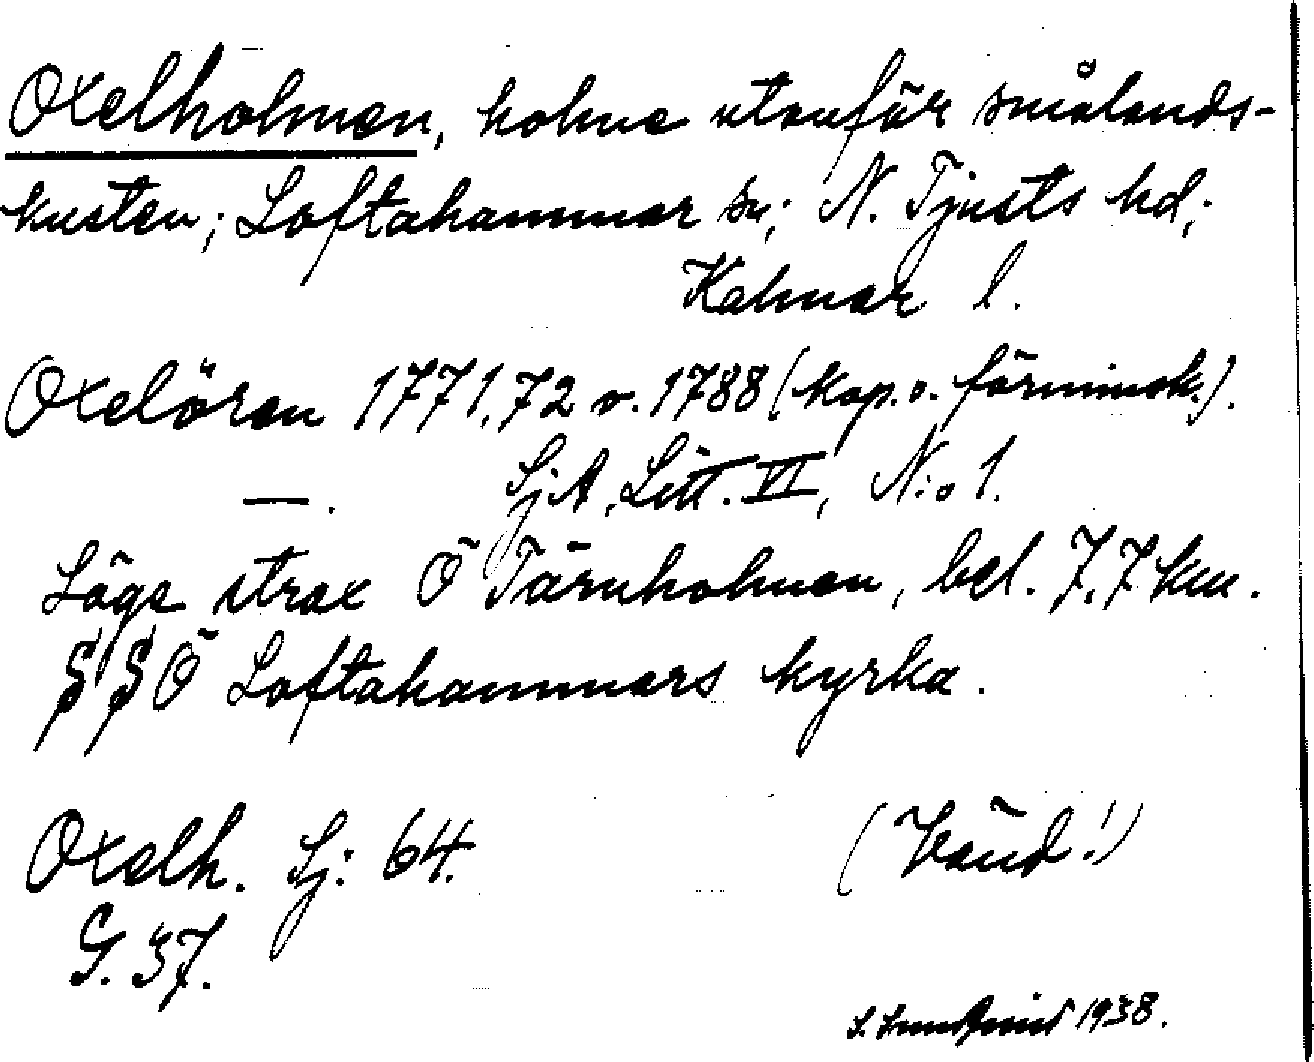 Oxelholmen, holme utanför smålands-
kusten; Loftahammar sn; N. Tjusts hd;
Kalmar l.
Oxelören 1771,72 o. 1788 (kop. o. förminsk.).
—. SjA, Litt. VI, N:o 1.
Låge strax Ö Tärnholmen, bel. 7,7 km.
SSÖ Loftahammars kyrka.
Oxelh. Sj: 64.
(Vänd!)
G. 37.
1938.